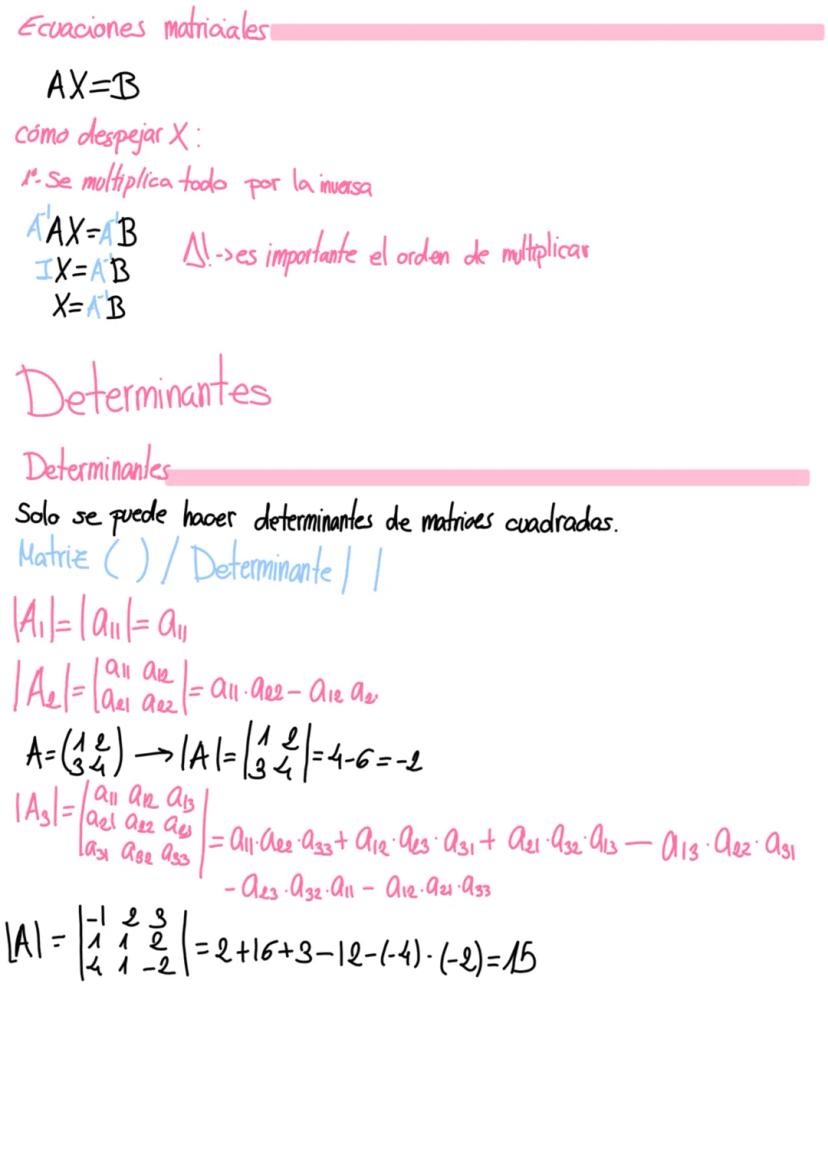 Ecuaciones matriciales
AX=B
cómo despejar X:
1º- Se multiplica todo por la inversa
A⁻¹AX=A⁻¹B
⚠ -> es importante el orden de multiplicar
IX=A⁻¹B
X=A⁻¹B
Determinantes
Determinantes
Solo se puede hacer determinantes de matrices cuadradas.
Matriz ( ) / Determinante | |
|A₁|=|a₁₁|=a₁₁
|A₂|=|a₁₁ a₁₂
a₂₁ a₂₂|= a₁₁·a₂₂- a₁₂ a₂₁
A=(1 2
3 4) → |A|=|1 2
3 4|=4-6=-2
|A₃|=|a₁₁ a₁₂ a₁₃
a₂₁ a₂₂ a₂₃
a₃₁ a₃₂ a₃₃|= a₁₁·a₂₂·a₃₃+ a₁₂·a₂₃·a₃₁+ a₂₁·a₃₂·a₁₃ - a₁₃·a₂₂·a₃₁
- a₂₃·a₃₂·a₁₁ - a₁₂·a₂₁·a₃₃
|A| = |-1 2 3
1 1 2
4 1 -2| = 2+16+3-12-(-4)·(-2)=15